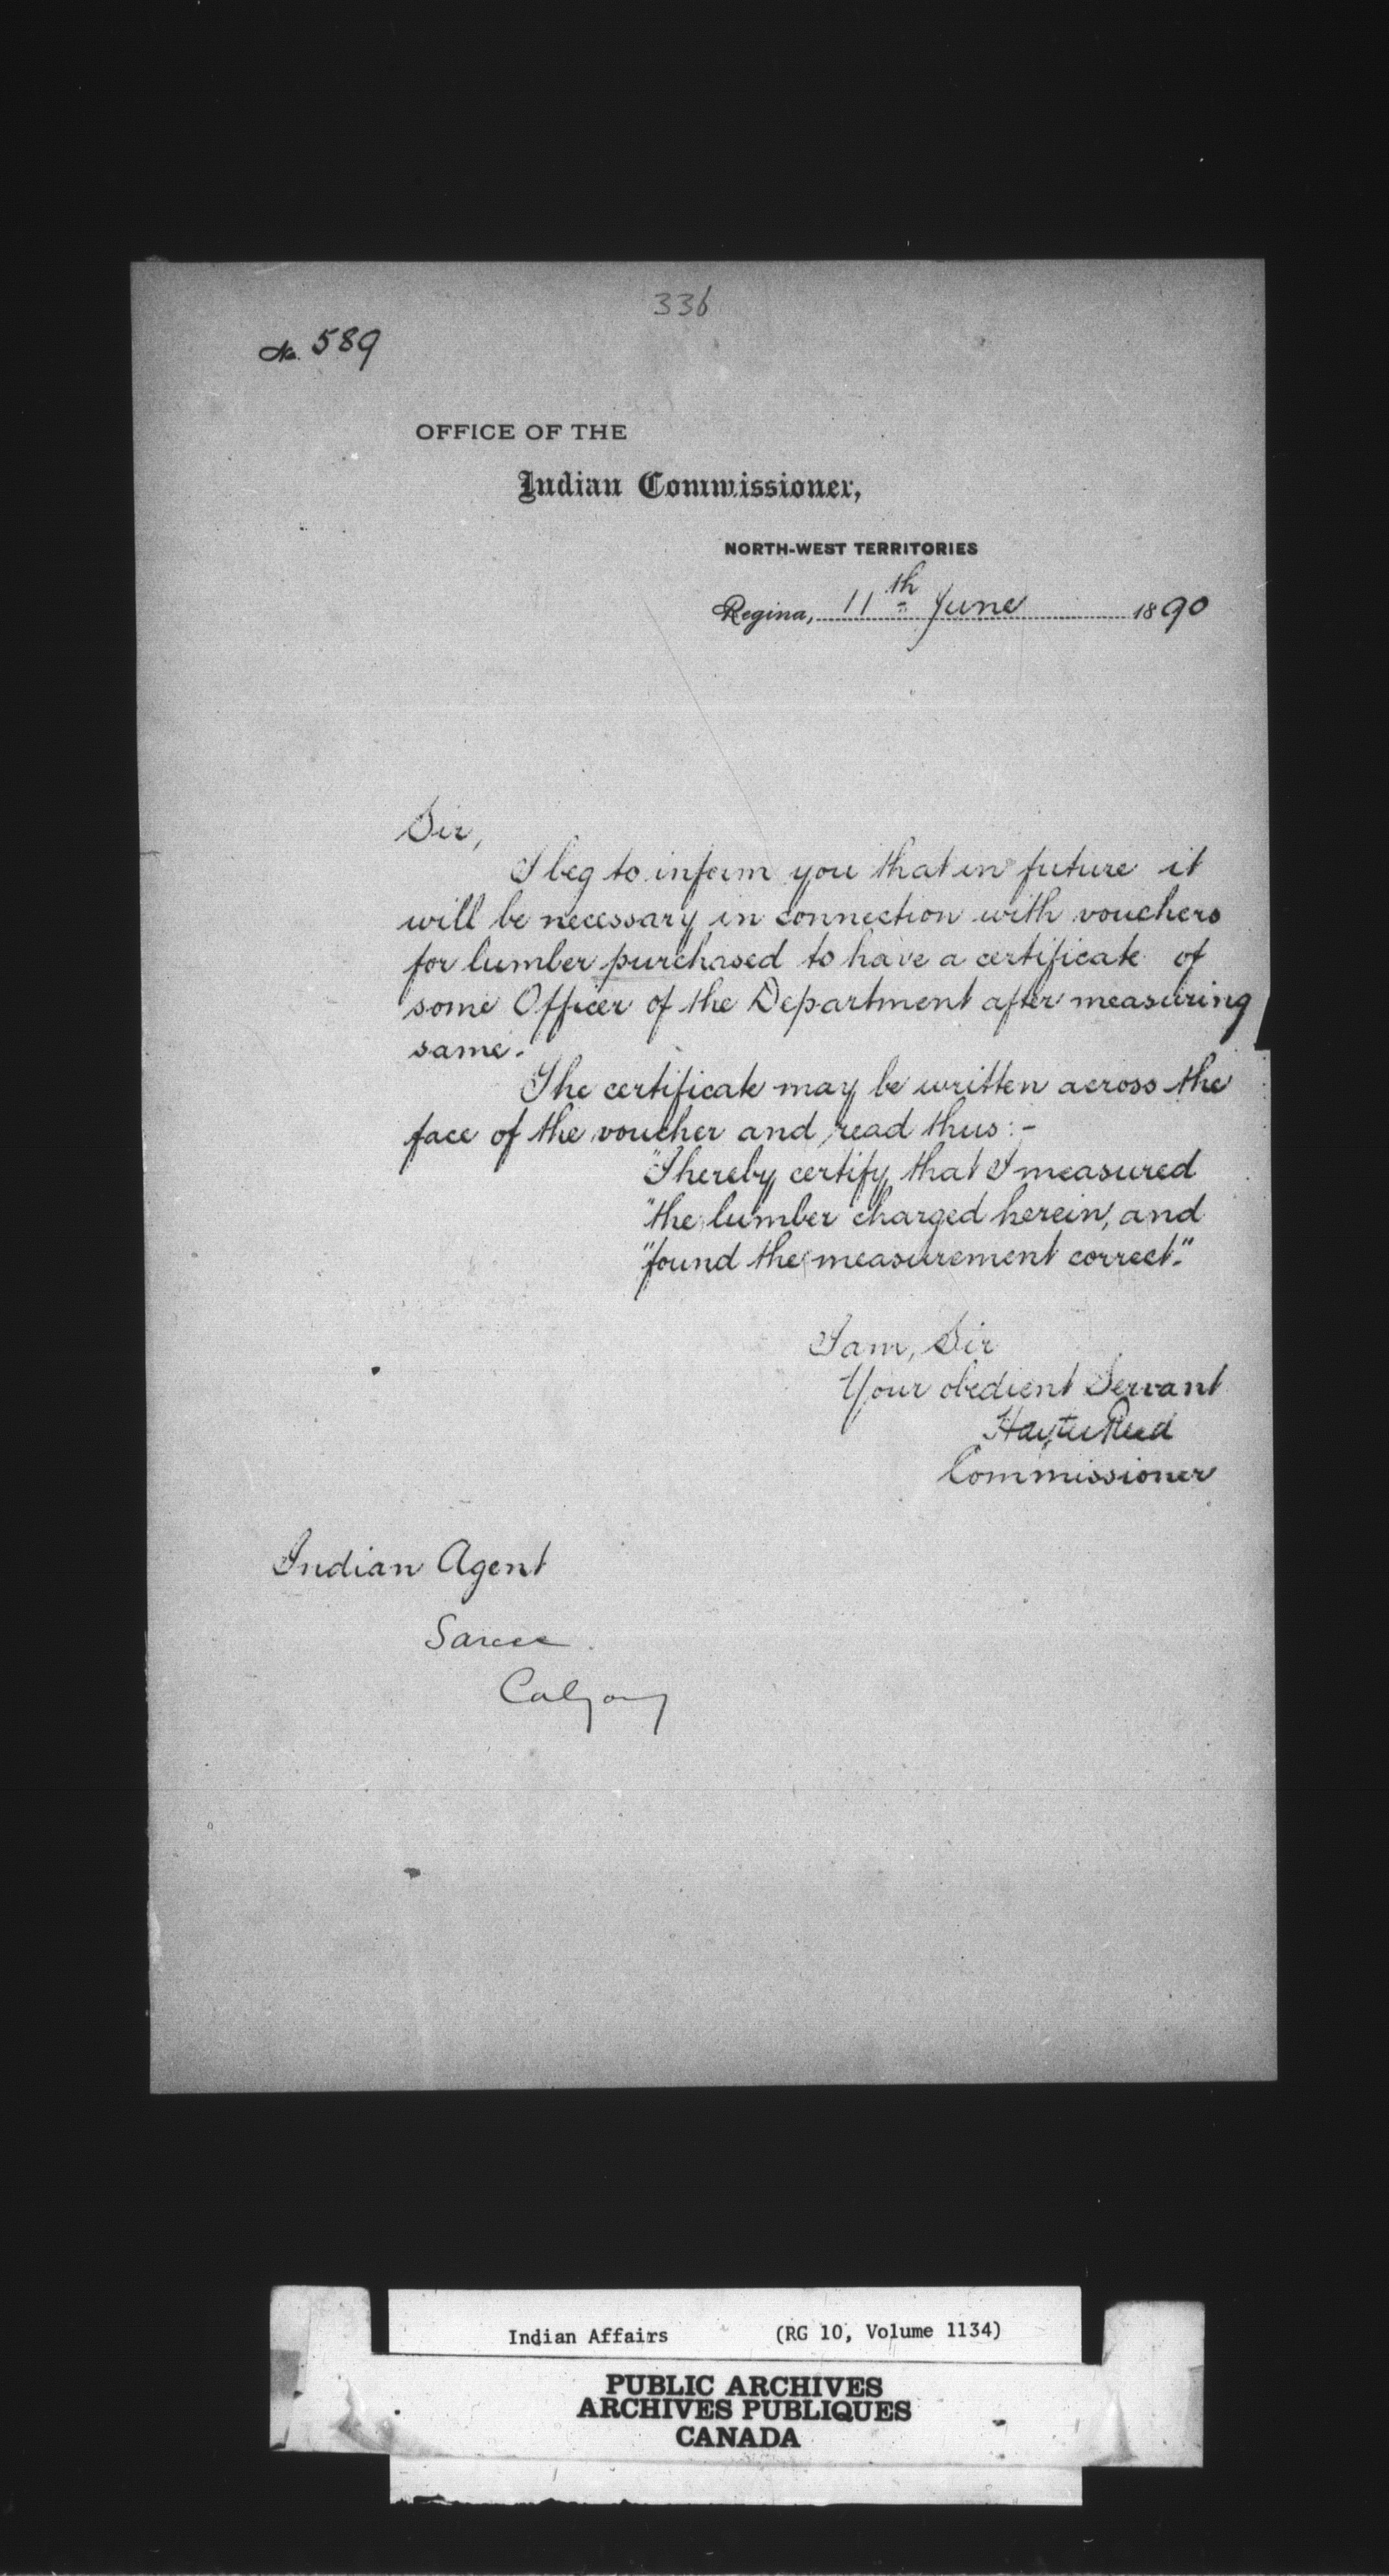 336
No. 589
OFFICE OF THE
Indian Commissioner,
NORTH-WEST TERRITORIES
Regina, 11th June 1890
Sir,
I beg to inform you that in future it
will be necessary in connection with vouchers
for lumber purchased to have a certificate of
some Officer of the Department after measuring
same.
The certificate may be written across the
face of the voucher and read thus:-
"I hereby certify that I measured
"the lumber charged herein, and
"found the measurement correct."
I am, Sir
Your obedient Servant
Hayter Reed
Commissioner
Indian Agent
Sarcee
Calgary
Indian Affairs (RG 10, Volume 1134)
PUBLIC ARCHIVES
ARCHIVES PUBLIQUES
CANADA